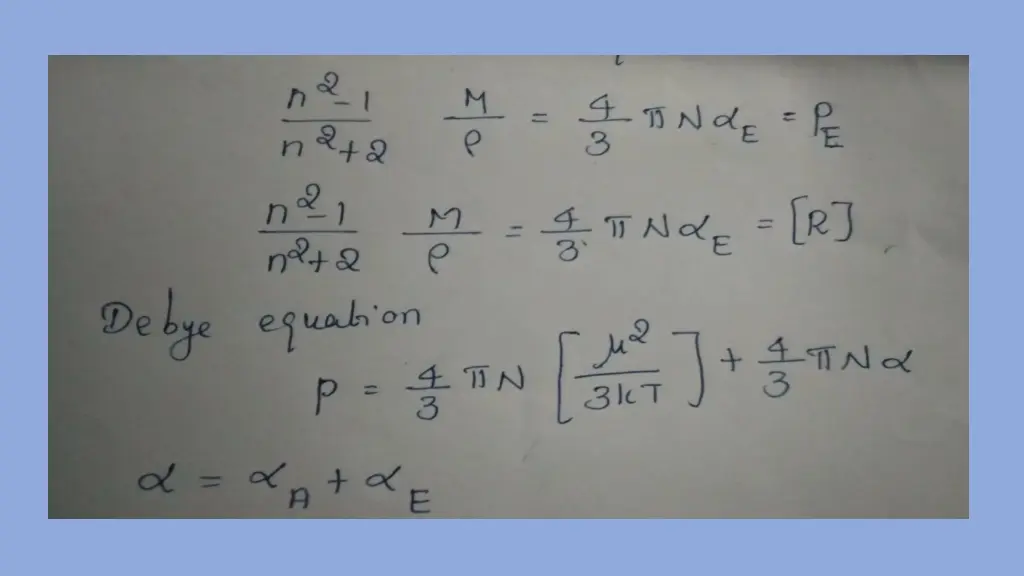 n²-1/n²+2 M/ρ = 4/3 πNα_E = P_E
n²-1/n²+2 M/ρ = 4/3 πNα_E = [R]
Debye equation
P = 4/3 πN [μ²/3kT] + 4/3 πNα
α = α_A + α_E